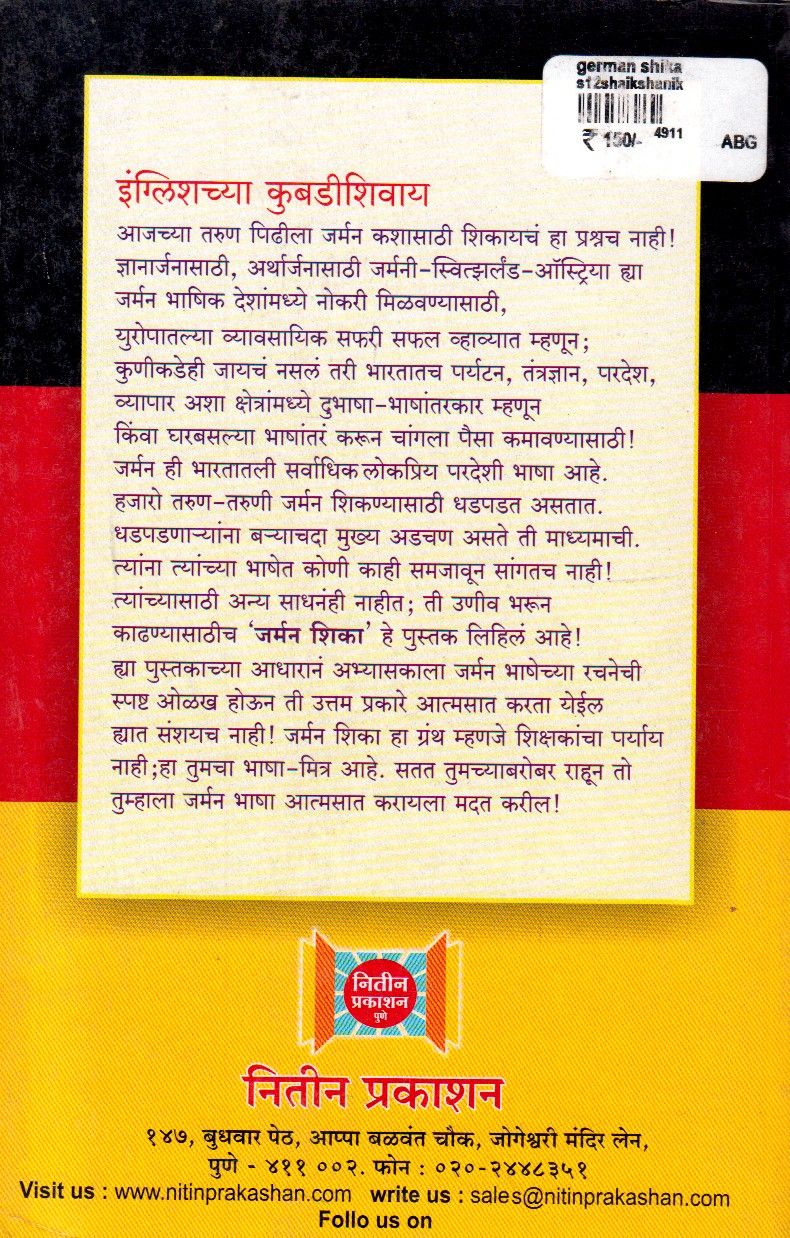 german shika
s12shaikshanik
₹ 150/- 4911 ABG
इंग्लिशच्या कुबडीशिवाय
आजच्या तरुण पिढीला जर्मन कशासाठी शिकायचं हा प्रश्नच नाही!
ज्ञानार्जनासाठी, अर्थार्जनासाठी जर्मनी-स्वित्झर्लंड-ऑस्ट्रिया ह्या
जर्मन भाषिक देशांमध्ये नोकरी मिळवण्यासाठी,
युरोपातल्या व्यावसायिक सफरी सफल व्हाव्यात म्हणून;
कुणीकडेही जायचं नसलं तरी भारतातच पर्यटन, तंत्रज्ञान, परदेश,
व्यापार अशा क्षेत्रांमध्ये दुभाषा-भाषांतरकार म्हणून
किंवा घरबसल्या भाषांतरं करून चांगला पैसा कमावण्यासाठी!
जर्मन ही भारतातली सर्वाधिक लोकप्रिय परदेशी भाषा आहे.
हजारो तरुण-तरुणी जर्मन शिकण्यासाठी धडपडत असतात.
धडपडणाऱ्यांना बऱ्याचदा मुख्य अडचण असते ती माध्यमाची.
त्यांना त्यांच्या भाषेत कोणी काही समजावून सांगतच नाही!
त्यांच्यासाठी अन्य साधनंही नाहीत; ती उणीव भरून
काढण्यासाठीच 'जर्मन शिका' हे पुस्तक लिहिलं आहे!
ह्या पुस्तकाच्या आधारानं अभ्यासकाला जर्मन भाषेच्या रचनेची
स्पष्ट ओळख होऊन ती उत्तम प्रकारे आत्मसात करता येईल
ह्यात संशयच नाही! जर्मन शिका हा ग्रंथ म्हणजे शिक्षकांचा पर्याय
नाही;हा तुमचा भाषा-मित्र आहे. सतत तुमच्याबरोबर राहून तो
तुम्हाला जर्मन भाषा आत्मसात करायला मदत करील!
नितीन
प्रकाशन
पुणे
नितीन प्रकाशन
१४७, बुधवार पेठ, आप्पा बळवंत चौक, जोगेश्वरी मंदिर लेन,
पुणे - ४११ ००२. फोन : ०२०-२४४८३५१
Visit us : www.nitinprakashan.com write us : sales@nitinprakashan.com
Follo us on